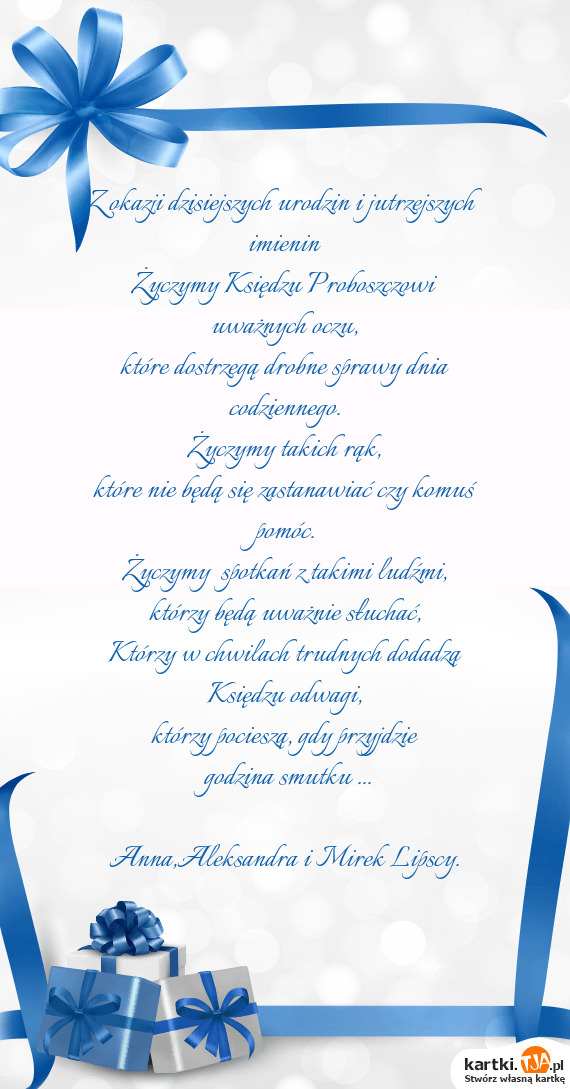 Z okazji dzisiejszych urodzin i jutrzejszych
imienin
Życzymy Księdzu Proboszczowi
uważnych oczu,
które dostrzegą drobne sprawy dnia
codziennego.
Życzymy takich rąk,
które nie będą się zastanawiać czy komuś
pomóc.
Życzymy spotkań z takimi ludźmi,
którzy będą uważnie słuchać,
Którzy w chwilach trudnych dodadzą
Księdzu odwagi,
którzy pocieszą, gdy przyjdzie
godzina smutku ...
Anna,Aleksandra i Mirek Lipscy.
kartki.TJA.pl
Stwórz własną kartkę